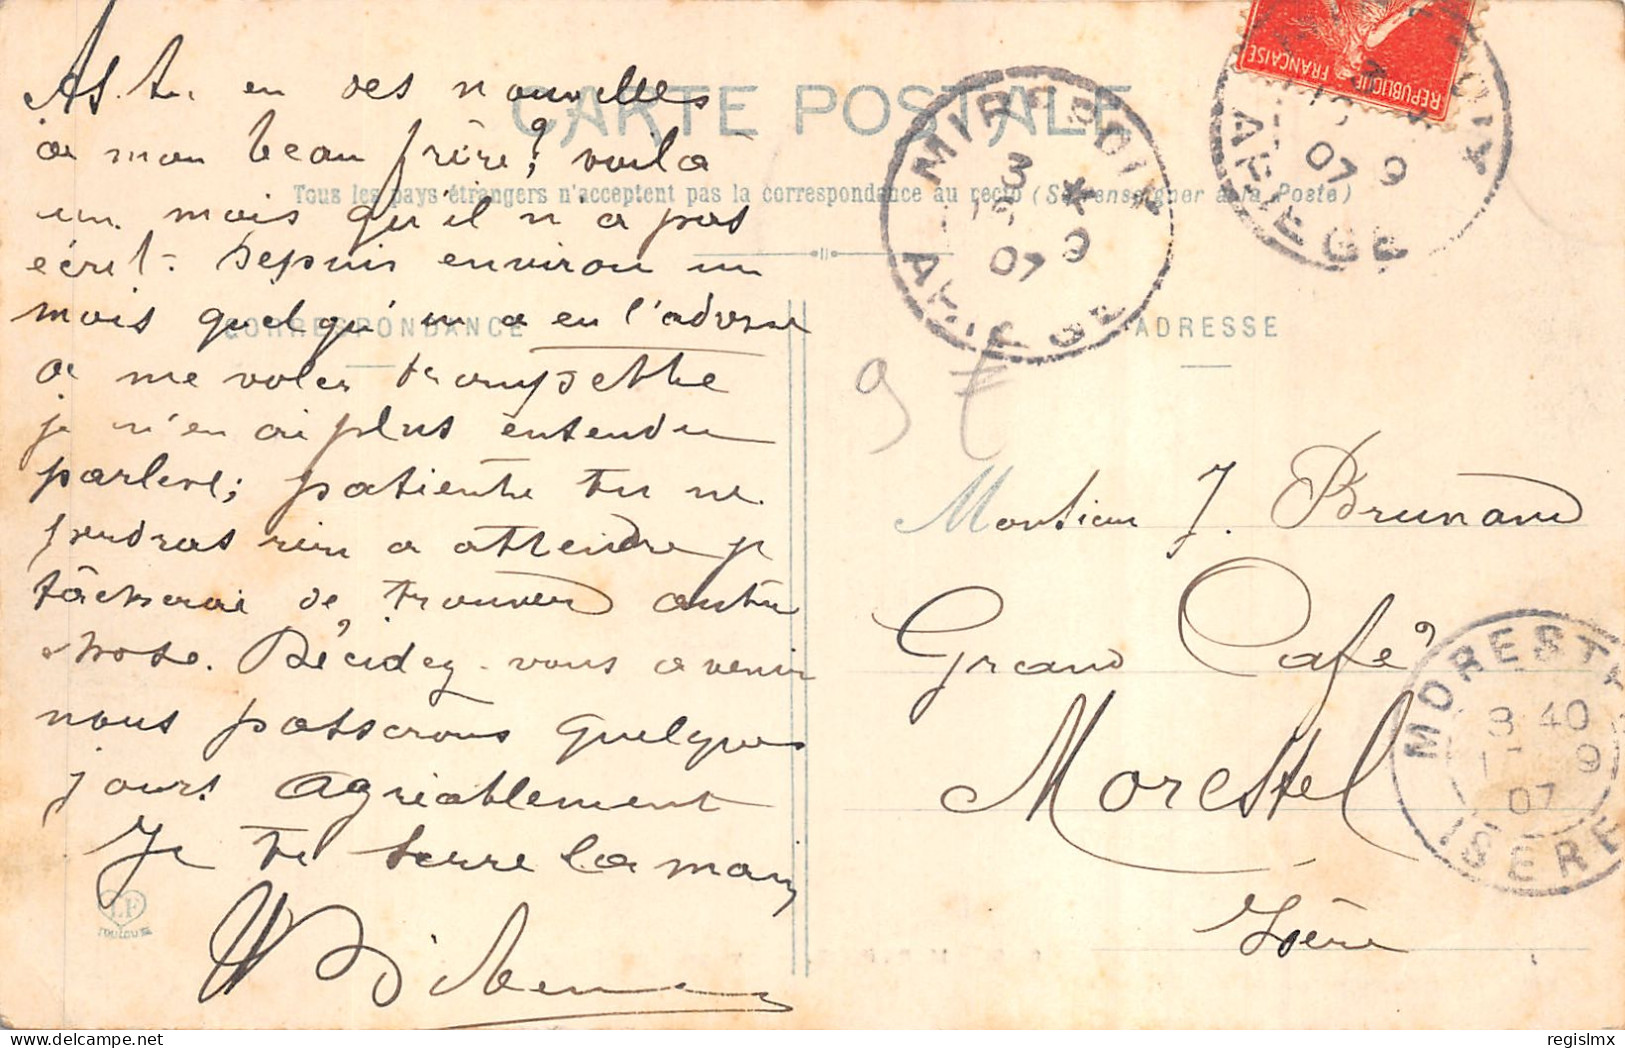 CARTE POSTALE
Tous les pays étrangers n'acceptent pas la correspondance au recto (Se renseigner à la Poste)
CORRESPONDANCE
ADRESSE
As-tu eu des nouvelles
de mon beau frère? voilà
un mois qu'il n'a pas
écrit. Depuis environ un
mois quelqu'un a eu l'adresse
de me voler trompette
je n'en ai plus entendu
parler; patiente tu ne
perdras rien a attendre je
tâcherai de trouver autre
chose. Décidez-vous a venir
nous passerons quelques
jours agréablement
Je te serre la main
LF
TOULOUSE
RÉPUBLIQUE FRANÇAISE
MIREPOIX
3 *
15 9
07
ARIEGE
MIREPOIX
3 *
15 9
07
ARIEGE
Monsieur J. Brunand
Grand Café
Morestel
Isère
MORESTEL
3 40
17 9
07
ISERE
regislmx